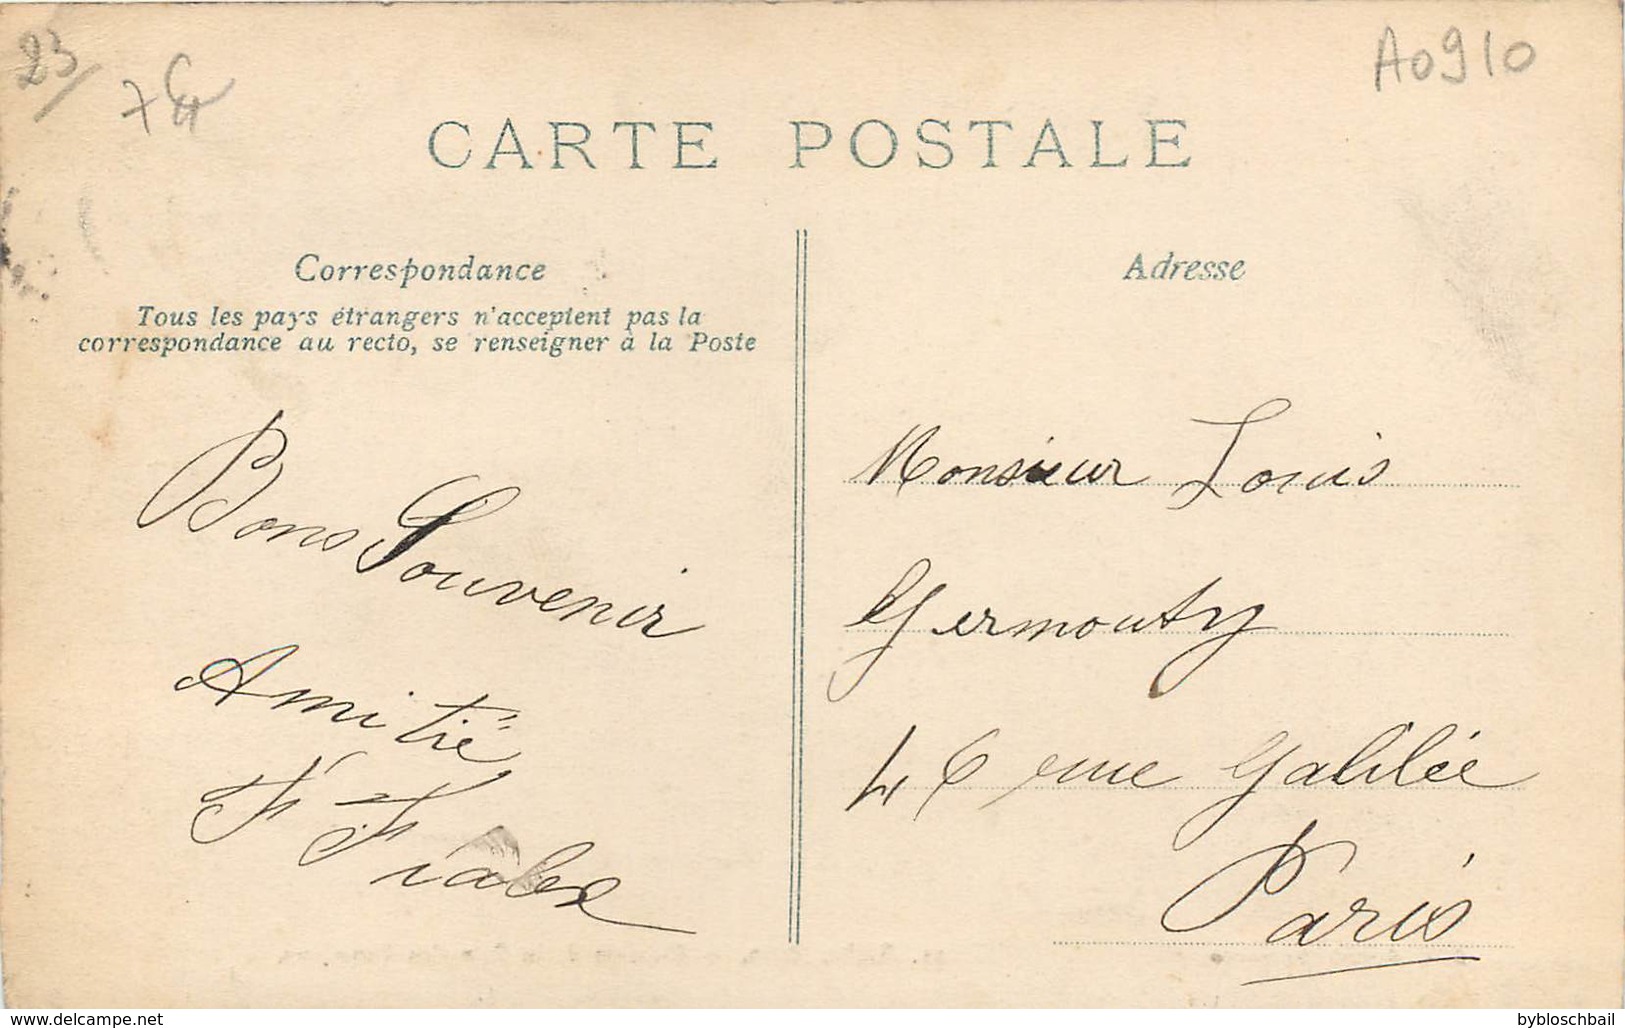 23
A0910
CARTE POSTALE
Correspondance
Tous les pays étrangers n'acceptent pas la
correspondance au recto, se renseigner à la Poste
Bons Souvenir
Amitié
F Fiabe
Adresse
Monsieur Louis
Germouty
46 rue Galilée
Paris
www.delcampe.net
bybloschbail